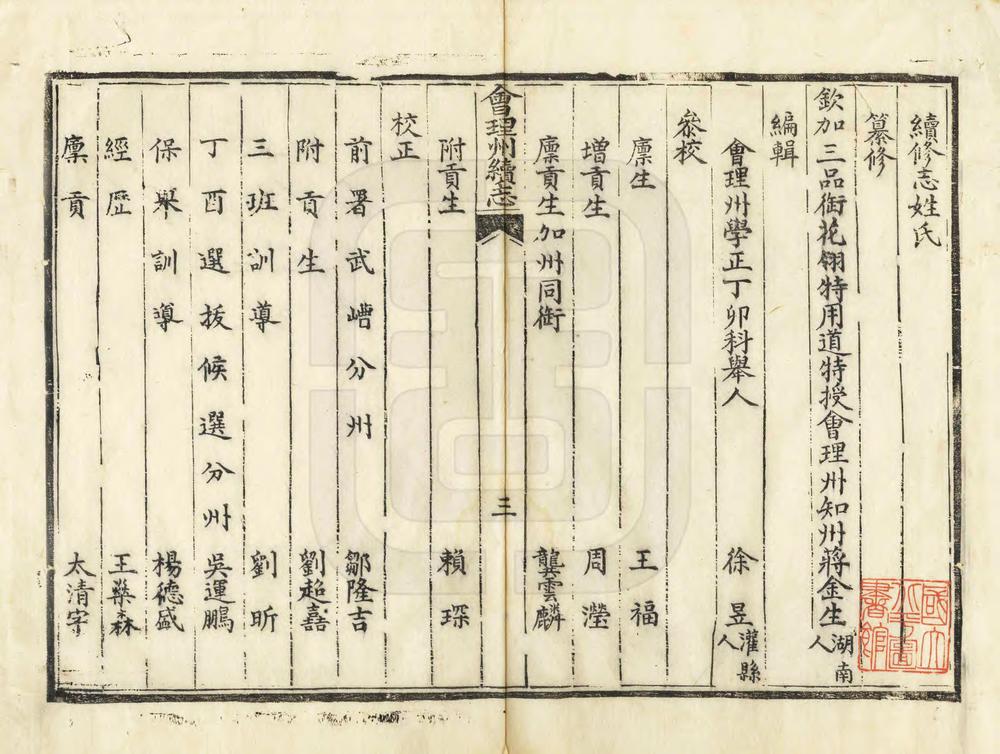 續修志姓氏
纂修
欽加三品銜花翎特用道特授會理州知州蔣金生湖南人
編輯
會理州學正丁卯科舉人 徐昱灌縣人
參校
廪生 王福
增貢生 周瀅
廪貢生加州同銜 龔雲麟
會理州續志 三
附貢生 賴琛
校正
前署武嶆分州 鄒隆吉
附貢生 劉超嘉
三班訓導 劉昕
丁酉選拔候選分州 吳運鵬
保舉訓導 楊德盛
經歴 王森
廪貢 太清宇
國立北平圖書館